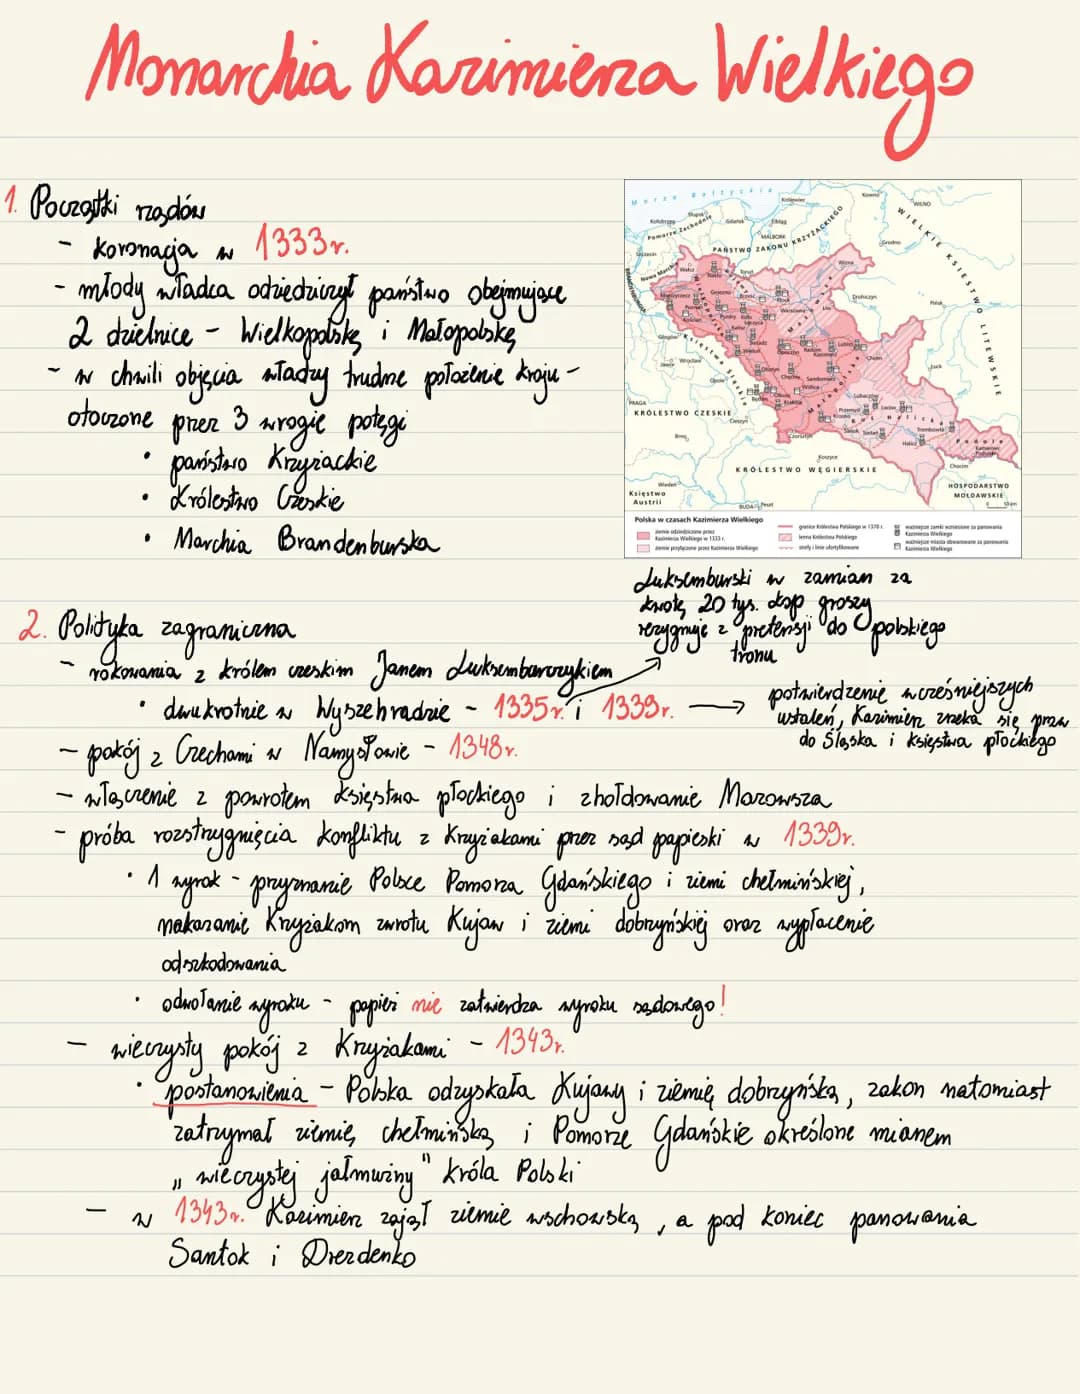 Monarchia Kazimierza Wielkiego
1. Początki rządów
- koronacja w 1333r.
- młody władca odziedziczył państwo obejmujące
2 dzielnice - Wielkopolskę i Małopolskę
- w chwili objęcia władzy trudne położenie kraju -
otoczone przez 3 wrogie potęgi
• państwo Krzyżackie
• Królestwo Czeskie
• Marchia Brandenburska
Morze Bałtyckie
Królewiec
Kowno
WILNO
Kołobrzeg
Słupsk
Gdańsk
Elbląg
MALBORK
Pomorze Zachodnie
PAŃSTWO ZAKONU KRZYŻACKIEGO
WIELKIE KSIĘSTWO LITEWSKIE
Grodno
Szczecin
Nowa Marchia
Wałcz
Toruń
Wizna
Drohiczyn
Pińsk
Gniezno
Płock
Warszawa
Głogów
Wrocław
Opole
Księstwa Śląskie
Lublin
Chełm
Łuck
Radom
Sandomierz
Wiślica
Kraków
PRAGA
KRÓLESTWO CZESKIE
Cieszyn
Brno
Przemyśl
Lwów
Ruś Halicka
Krosno
Sanok
Halicz
Trembowla
Podole
Kamieniec Podolski
Czorsztyn
Koszyce
KRÓLESTWO WĘGIERSKIE
Chocim
HOSPODARSTWO MOŁDAWSKIE
Wiedeń
Księstwo Austrii
BUDA
Peszt
Polska w czasach Kazimierza Wielkiego
ziemie odziedziczone przez Kazimierza Wielkiego w 1333 r.
ziemie przyłączone przez Kazimierza Wielkiego
granice Królestwa Polskiego w 1370 r.
lenna Królestwa Polskiego
ważniejsze zamki wzniesione za panowania Kazimierza Wielkiego
ważniejsze miasta obwarowane za panowania Kazimierza Wielkiego
Luksemburski w zamian za
kwotę 20 tys. kop groszy
rezygnuje z pretensji do polskiego
tronu
2. Polityka zagraniczna
- rokowania z królem czeskim Janem Luksemburczykiem
• dwukrotnie w Wyszehradzie - 1335r. i 1339r. →
potwierdzenie wcześniejszych
ustaleń, Kazimierz zrzeka się praw
do Śląska i księstwa płockiego
- pokój z Czechami w Namysłowie - 1348r.
- włączenie z powrotem księstwa płockiego i zhołdowanie Mazowsza
- próba rozstrzygnięcia konfliktu z Krzyżakami przez sąd papieski w 1339r.
• 1 wyrok - przyznanie Polsce Pomorza Gdańskiego i ziemi chełmińskiej,
nakazanie Krzyżakom zwrotu Kujaw i ziemi dobrzyńskiej oraz wypłacenie
odszkodowania
• odwołanie wyroku - papież nie zatwierdza wyroku sądowego!
- wieczysty pokój z Krzyżakami - 1343r.
• postanowienia - Polska odzyskała Kujawy i ziemię dobrzyńską, zakon natomiast
zatrzymał ziemię chełmińską i Pomorze Gdańskie określone mianem
„wieczystej jałmużny" króla Polski
- w 1343r. Kazimierz zajął ziemie wschowską, a pod koniec panowania
Santok i Drezdenko